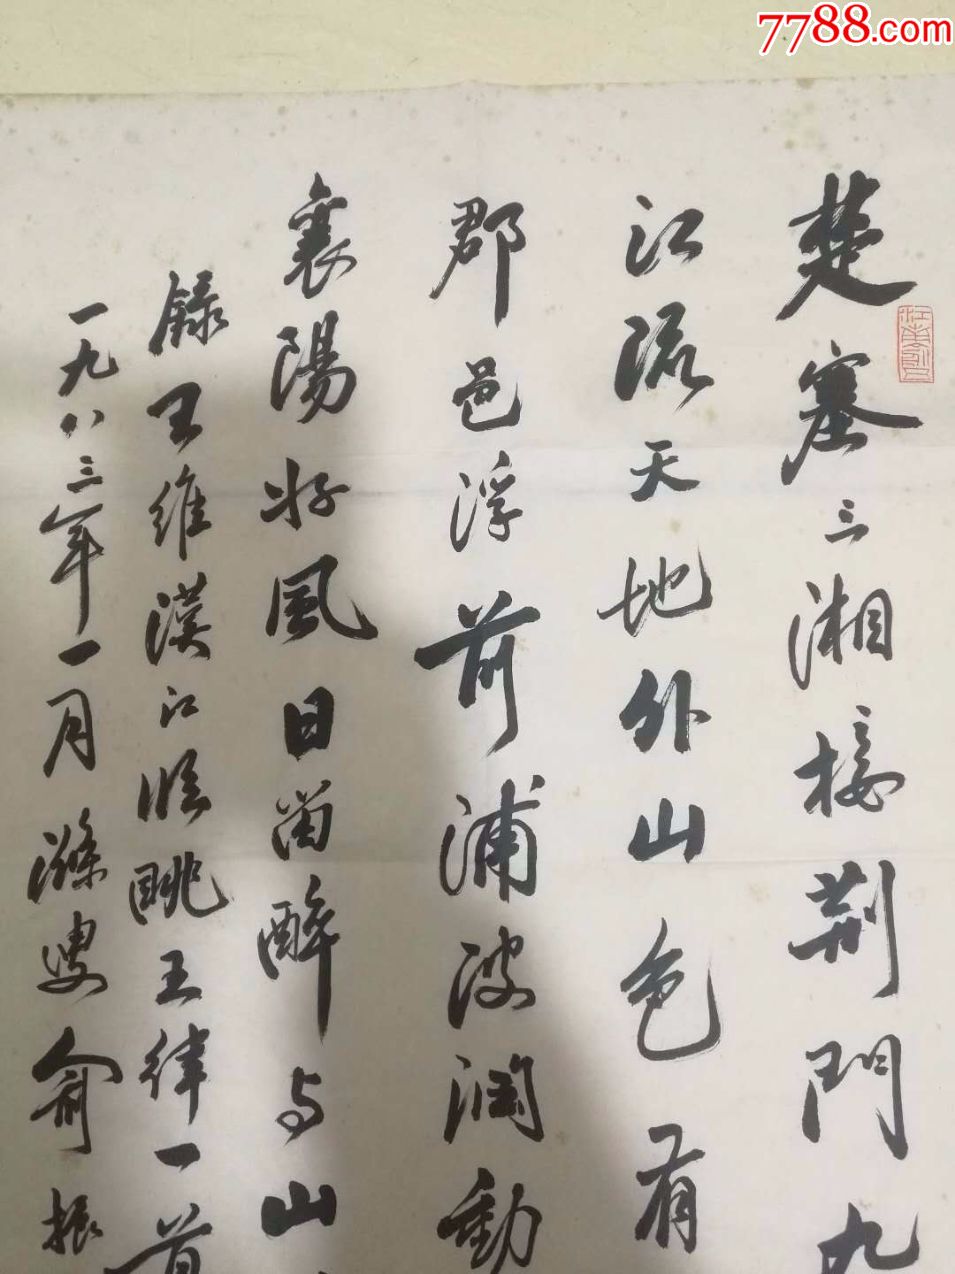 7788.com
楚塞三湘接荆門九
江流天地外山色有
郡邑浮前浦波澜動
襄陽好風日留醉与山
録王維漢江临眺五律一首
一九八三年一月滌叟俞振